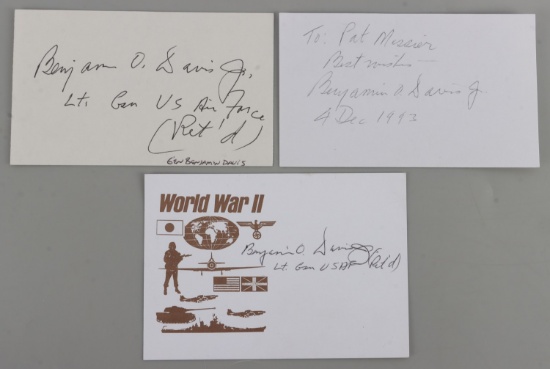 Benjamin O. Davis Jr.
Lt. Gen US Air Force
(Ret'd)
GEN BENJAMIN DAVIS
To: Pat Messier
Best wishes —
Benjamin O Davis Jr
4 Dec 1993
World War II
Benjamin O. Davis Jr
Lt. Gen USAF (Ret'd)